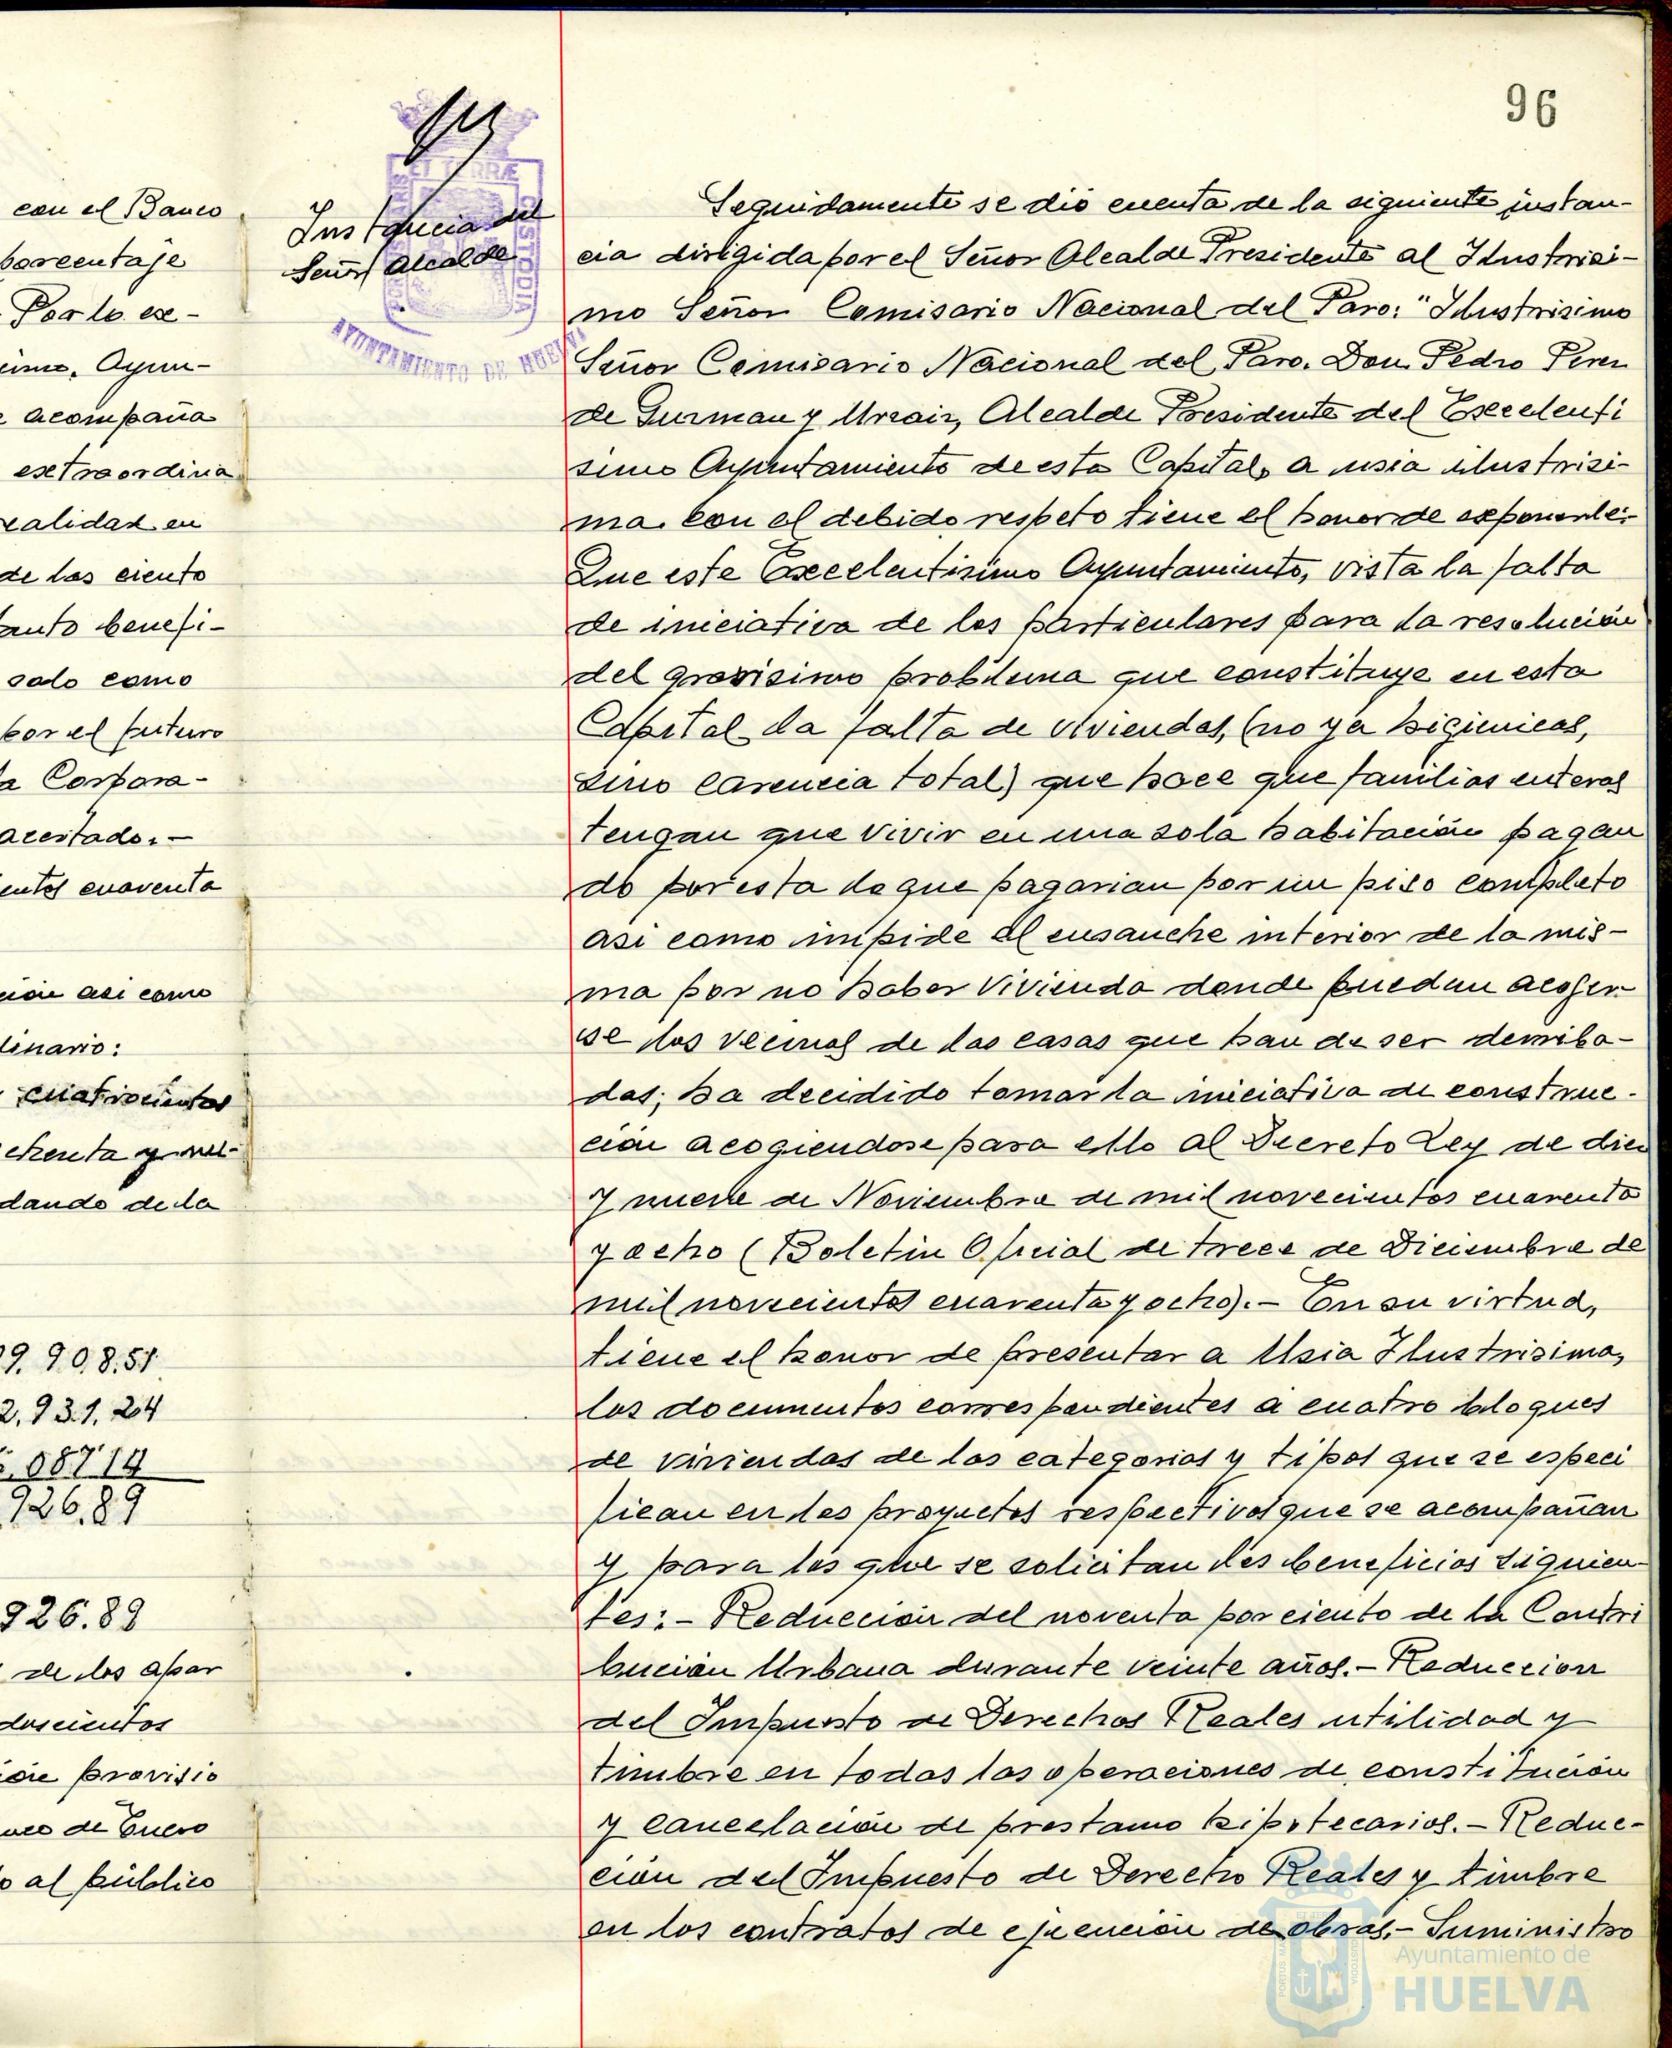 96
con el Banco
porcentaje
Por lo ex-
simo. Ayun-
acompaña
extraordina
realidad en
de las ciento
tanto benefi-
solo como
por el futuro
la Corpora-
acertado.-
entos cuarenta
ción asi como
dinario:
cuatrocientos
ochenta y nue-
dando de la
9.908.51
2.931.24
08714
926.89
926.89
de los apar
doscientos
provisio
de Enero
o al público
Instancia del
Señor Alcalde
ET TERRÆ
CUSTODIA
AYUNTAMIENTO DE HUELVA
Seguidamente se dió cuenta de la siguiente instan-
cia dirigida por el Señor Alcalde Presidente al Ilustrisi-
mo Señor Comisario Nacional del Paro: "Ilustrisimo
Señor Comisario Nacional del Paro. Don Pedro Perez
de Guzman y Urzaiz, Alcalde Presidente del Excelenti
simo Ayuntamiento de esta Capital, a usia ilustrisi-
ma con el debido respeto tiene el honor de exponerle:-
Que este Excelentisimo Ayuntamiento, vista la falta
de iniciativa de los particulares para la resolución
del gravisimo problema que constituye en esta
Capital la falta de viviendas, (no ya higienicas,
sino carencia total) que hace que familias enteras
tengan que vivir en una sola habitación pagan
do por esta lo que pagarian por un piso completo
asi como impide el ensanche interior de la mis-
ma por no haber vivienda donde puedan acoger-
se los vecinos de las casas que han de ser derriba-
das; ha decidido tomar la iniciativa de construc-
ción acogiendose para ello al Decreto Ley de diez
y nueve de Noviembre de mil novecientos cuarenta
y ocho (Boletin Oficial de trece de Diciembre de
mil novecientos cuarenta y ocho).- En su virtud,
tiene el honor de presentar a Usia Ilustrisima,
los documentos correspondientes a cuatro bloques
de viviendas de las categorias y tipos que se especi
fican en los proyectos respectivos que se acompañan
y para los que se solicitan los beneficios siguien-
tes:- Reducción del noventa por ciento de la Contri
bución Urbana durante veinte años.- Reduccion
del Impuesto de Derechos Reales utilidad y
timbre en todas las operaciones de constitución
y cancelación de prestamo hipotecarios.- Reduc-
ción del Impuesto de Derecho Reales y timbre
en los contratos de ejecución de obras.- Suministro
Ayuntamiento de
HUELVA